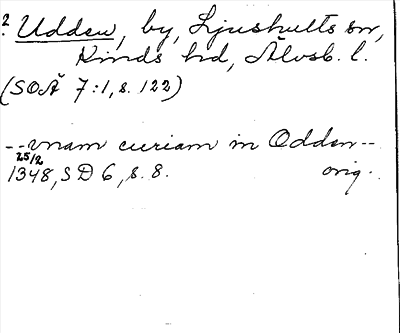 2. Udden, by, Ljushults sn,
Kinds hd, Älvsb. l.
(SOÄ 7:1, s. 122)
--vnam curiam in Odden--
25/2
1348, SD 6, s. 8. orig.